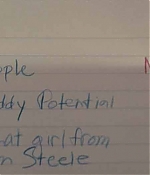 ople
ddy Potential
at girl from
n Steele